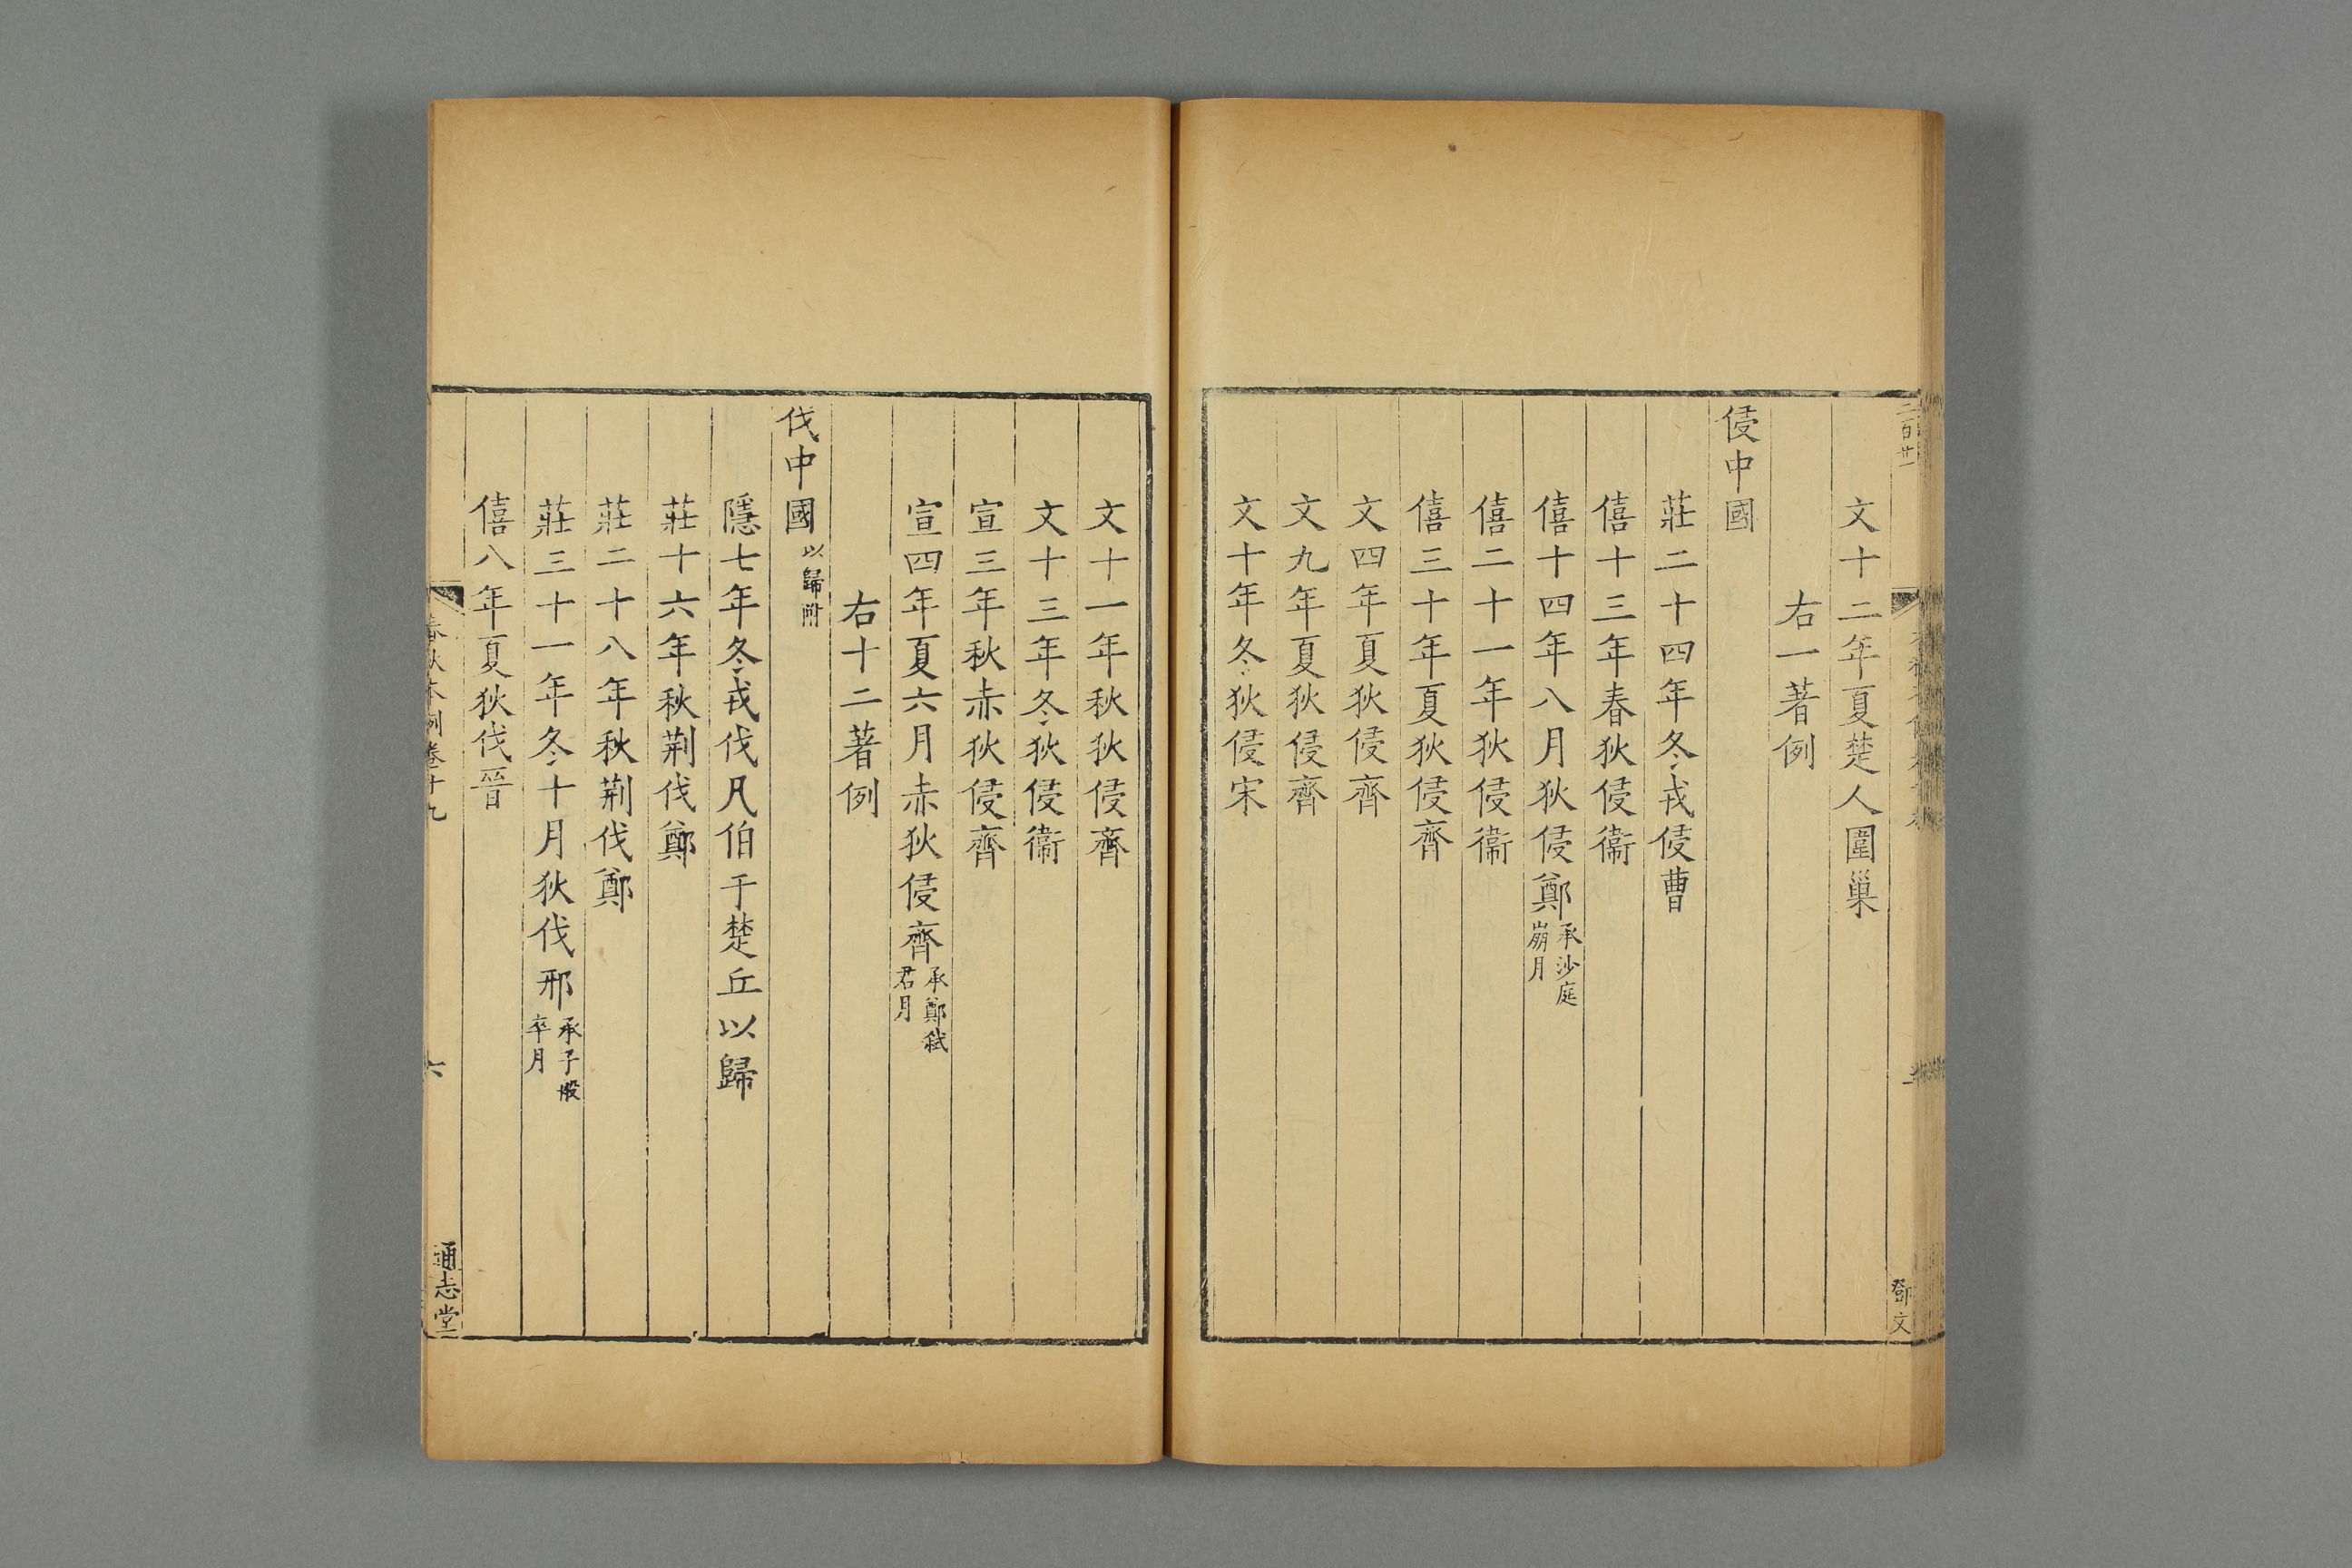 文十二年夏楚人圍巢
右一著例
侵中國
莊二十四年冬戎侵曹
僖十三年春狄侵衞
僖十四年八月狄侵鄭承沙庭崩月
僖二十一年狄侵衞
僖三十年夏狄侵齊
文四年夏狄侵齊
文九年夏狄侵齊
文十年冬狄侵宋
鄧文
文十一年秋狄侵齊
文十三年冬狄侵衞
宣三年秋赤狄侵齊
宣四年夏六月赤狄侵齊承鄭弒君月
右十二著例
伐中國以歸附
隱七年冬戎伐凡伯于楚丘以歸
莊十六年秋荆伐鄭
莊二十八年秋荆伐鄭
莊三十一年冬十月狄伐邢承子般卒月
僖八年夏狄伐晉
春秋本例卷十九
六
通志堂